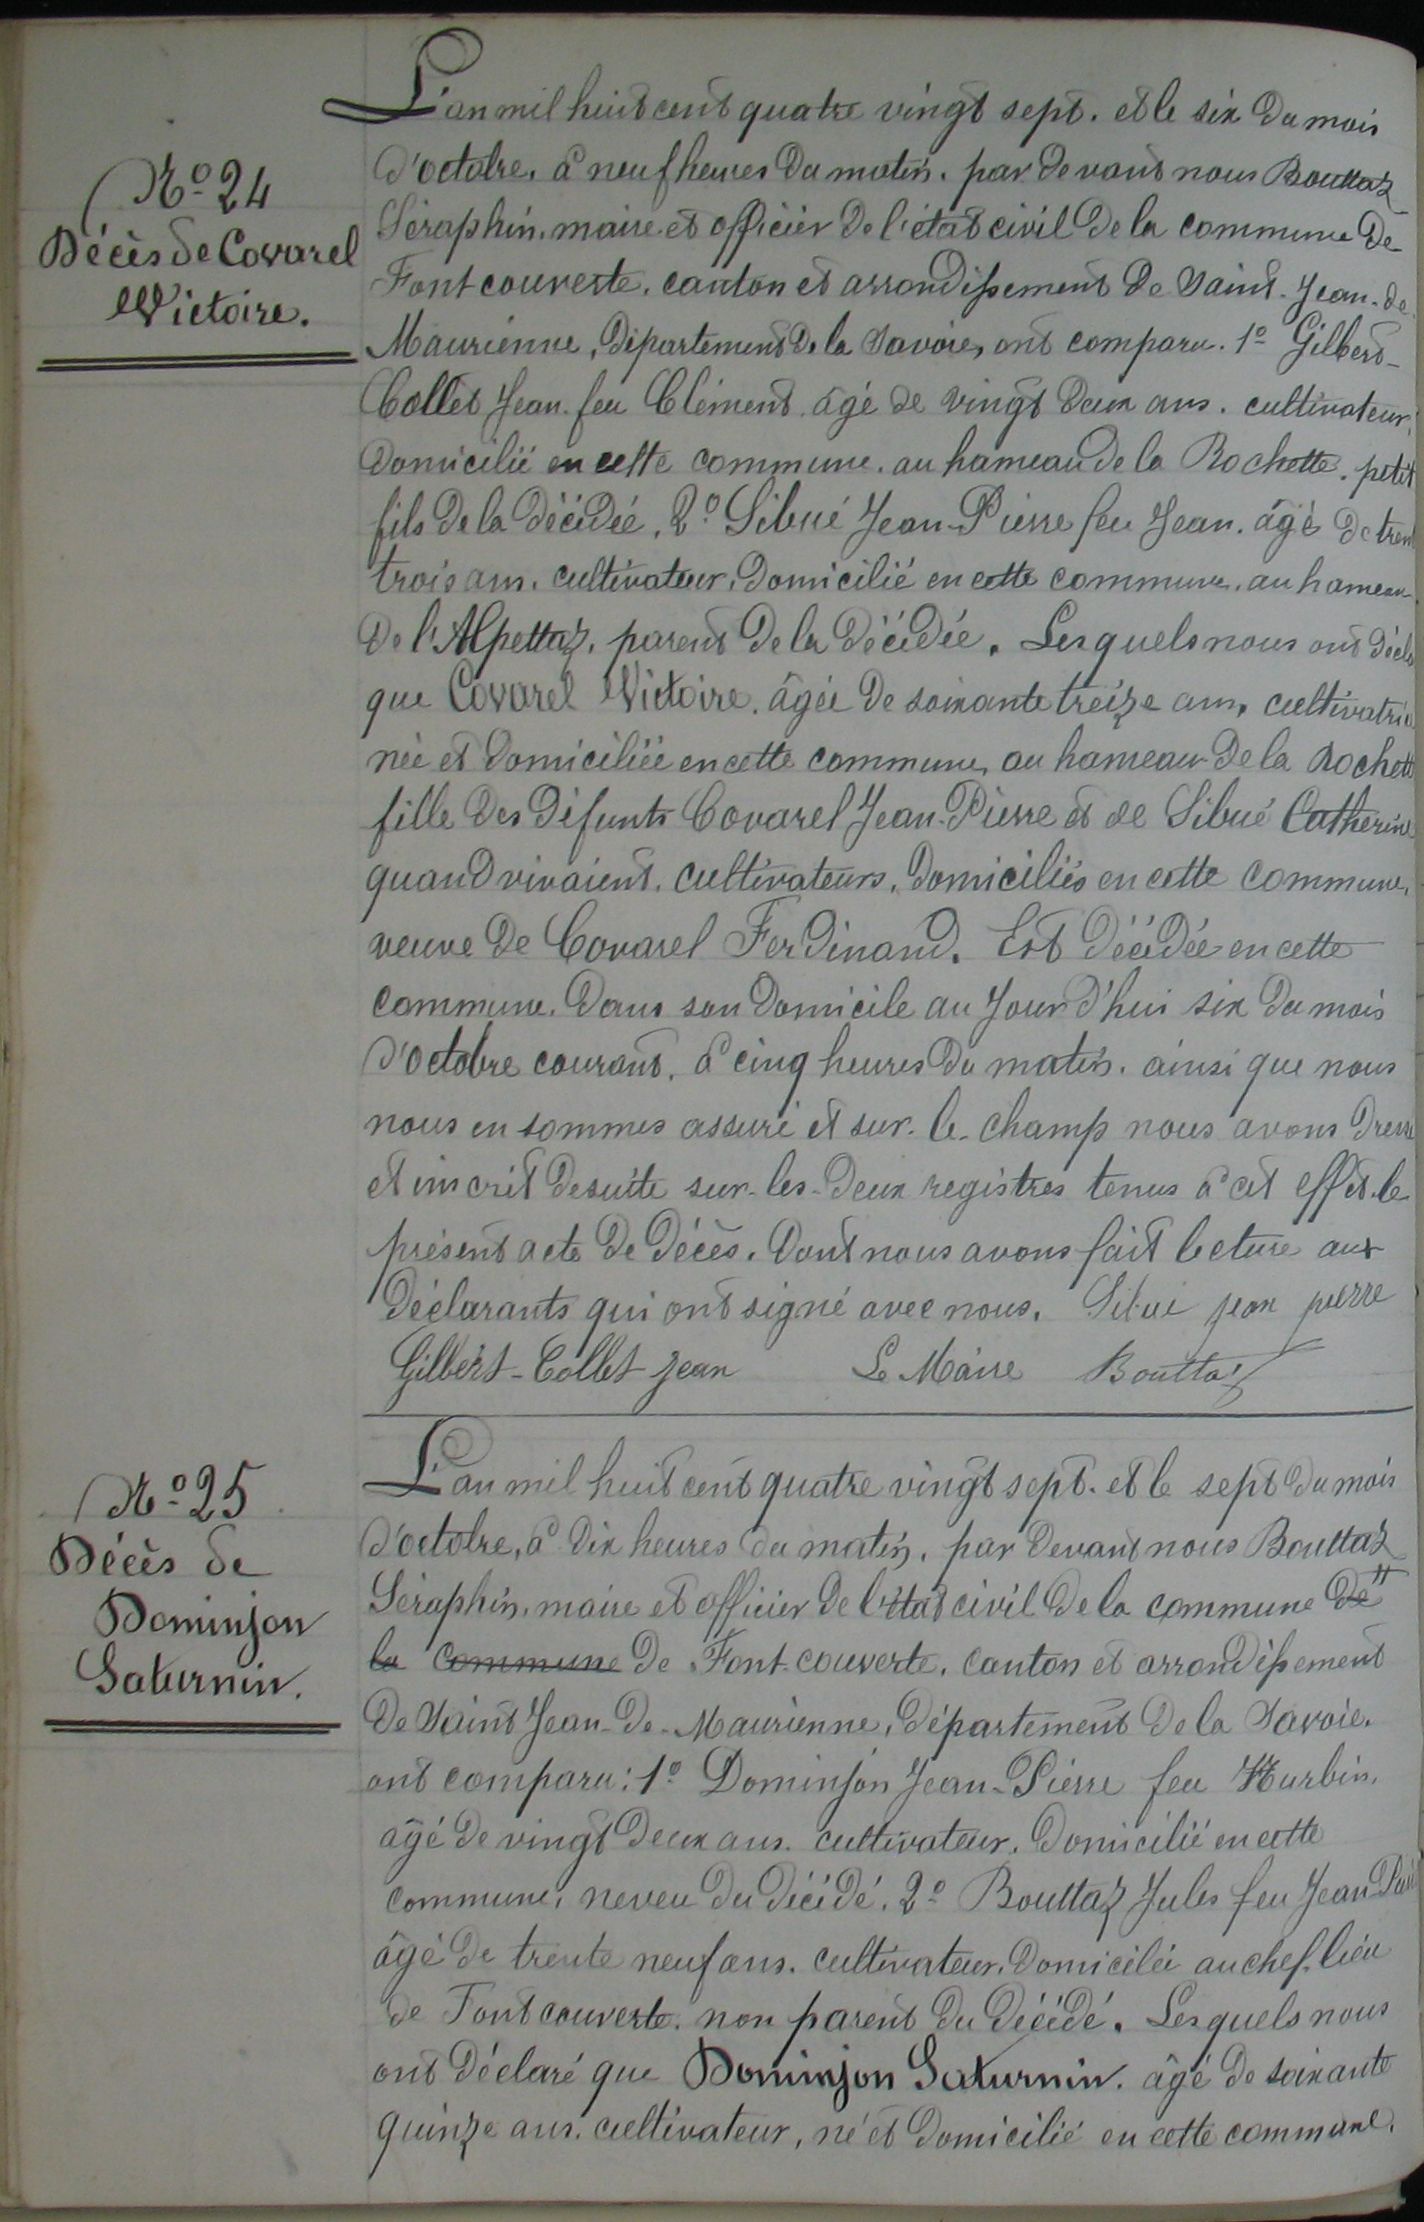 N° 24
Décès de Covarel
Victoire.
L'an mil huit cent quatre vingt sept. et le six du mois
d'octobre, à neuf heures du matin, par devant nous Bouttaz
Séraphin, maire et officier de l'état civil de la commune de
Fontcouverte, canton et arrondissement de Saint-Jean-de-
Maurienne, département de la Savoie, ont comparu. 1° Gilbert-
Collet Jean feu Clément âgé de vingt deux ans, cultivateur,
domicilié en cette commune, au hameau de la Rochette, petit
fils de la décédée, 2° Sibué Jean-Pierre feu Jean, âgé de tren
trois ans, cultivateur, domicilié en cette commune, au hameau
de l'Alpettaz, parent de la décédée. Lesquels nous ont décla
que Covarel Victoire, âgée de soixante treize ans, cultivatric
née et domiciliée en cette commune, au hameau de la Rochett
fille des défunts Covarel Jean-Pierre et de Sibué Catherine
quand vivaient, cultivateurs, domiciliés en cette commune,
veuve de Covarel Ferdinand. Est décédée en cette
commune, dans son domicile au jour d'hui six du mois
d'octobre courant, à cinq heures du matin, ainsi que nous
nous en sommes assuré et sur-le-champ nous avons dressé
et inscrit desuite sur-les-deux registres tenus à cet effet, le
présent acte de décès. Dont nous avons fait lecture aux
déclarants qui ont signé avec nous. Sibué jean pierre
Gilbert-Collet Jean Le Maire Bouttaz
N° 25
Décès de
Dominjon
Saturnin.
L'an mil huit cent quatre vingt sept. et le sept du mois
d'octobre, à dix heures du matin, par devant nous Bouttaz
Séraphin, maire et officier de l'état civil de la commune de"
la commune de Font-couverte, canton et arrondissement
de Saint Jean-de-Maurienne, département de la Savoie.
ont comparu: 1° Dominjon Jean-Pierre feu Hurbin,
âgé de vingt deux ans, cultivateur, domicilié en cette
commune, neveu du décédé, 2° Bouttaz Jules feu Jean
âgé de trente neuf ans, cultivateur, domicilié au chef-lieu
de Fontcouverte, non parent du décédé. Lesquels nous
ont déclaré que Dominjon Saturnin, âgé de soixante
quinze ans, cultivateur, né et domicilié en cette commune,